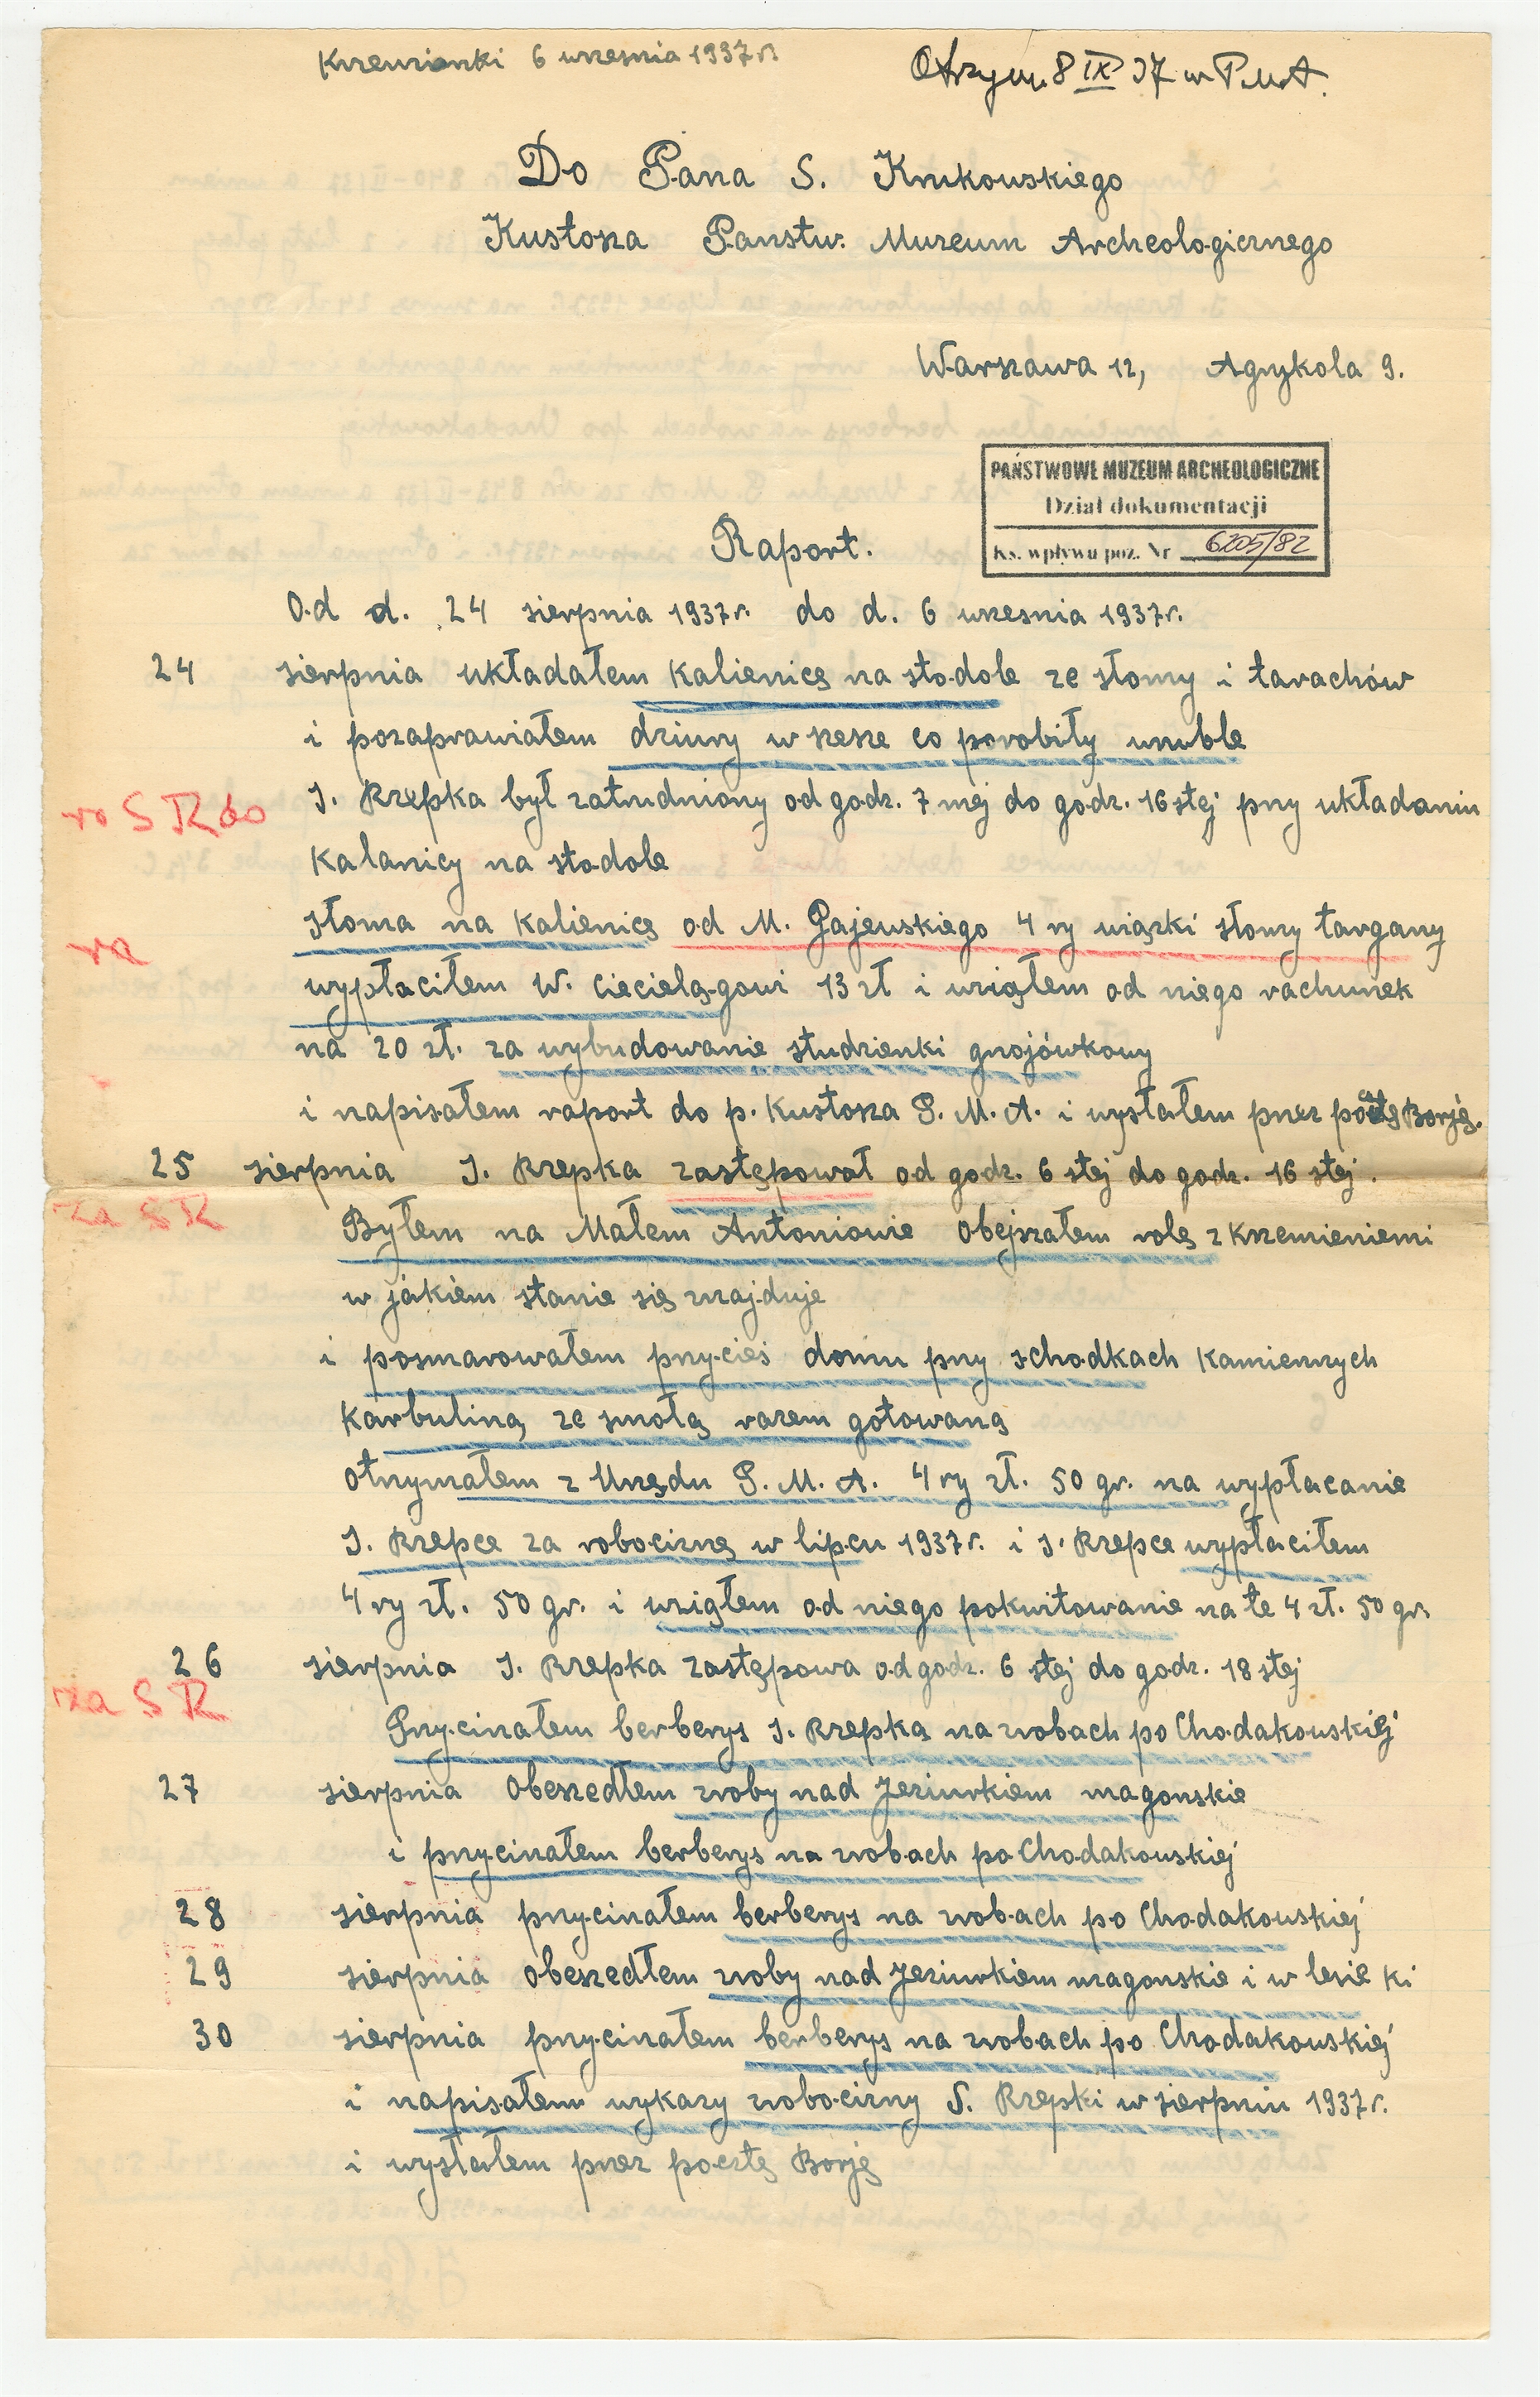 Krzemionki 6 wrzesnia 1937 r.
Otrzym. 8 IX 37 w P.M.A.
Do Pana S. Krukowskiego
Kustosza Państw. Muzeum Archeologicznego
Warszawa 12, Agrykola 9.
PAŃSTWOWE MUZEUM ARCHEOLOGICZNE
Dział dokumentacji
Ks. wpływu poz. Nr 6205/82
Raport.
Od d. 24 sierpnia 1937 r. do d. 6 wrzesnia 1937 r.
24 sierpnia układałem kalienicę na stodole ze słomy i tarachów
i pozaprawiałem dziury w szesze co porobiły wruble
J. Rzepka był zatrudniony od godz. 7 mej do godz. 16 stej przy układaniu
kalanicy na stodole
słoma na kalienicę od M. Gajewskiego 4 ry wiązki słomy targany
wypłaciłem W. Cieciela̧gowi 13 zł i wziąłem od niego rachunek
na 20 zł. za wybudowanie studzienki gnojówkowy
i napisałem raport do p. Kustosza P. M. A. i wysłałem przez pocztę Borję.
25 sierpnia J. Rzepka zastępował od godz. 6 stej do godz. 16 stej.
za S R
Byłem na Małem Antoniowie obejrzałem rolę z krzemieniemi
w jakiem stanie się znajduje
i posmarowałem przycieś domu przy schodkach kamiennych
karbuliną ze smołą razem gotowaną
otrzymałem z Urzędu P. M. A. 4 ry zł. 50 gr. na wypłacanie
J. Rzepce za robociznę w lipcu 1937 r. i J. Rzepce wypłaciłem
4 ry zł. 50 gr. i wziąłem od niego pokwitowanie na te 4 zł. 50 gr.
26 sierpnia J. Rzepka zastępowa od godz. 6 stej do godz. 18 stej
za S R
Przycinałem berberys J. Rzepką na zrobach po Chodakowskiej
27 sierpnia obeszedłem zroby nad Jeziurkiem magonskie
i przycinałem berberys na zrobach po Chodakowskiej
28 sierpnia przycinałem berberys na zrobach po Chodakowskiej
29 sierpnia obeszedłem zroby nad Jeziurkiem magonskie i w lesie ki
30 sierpnia przycinałem berberys na zrobach po Chodakowskiej
i napisałem wykazy robocizny S. Rzepki w sierpniu 1937 r.
i wysłałem przez pocztę Borję